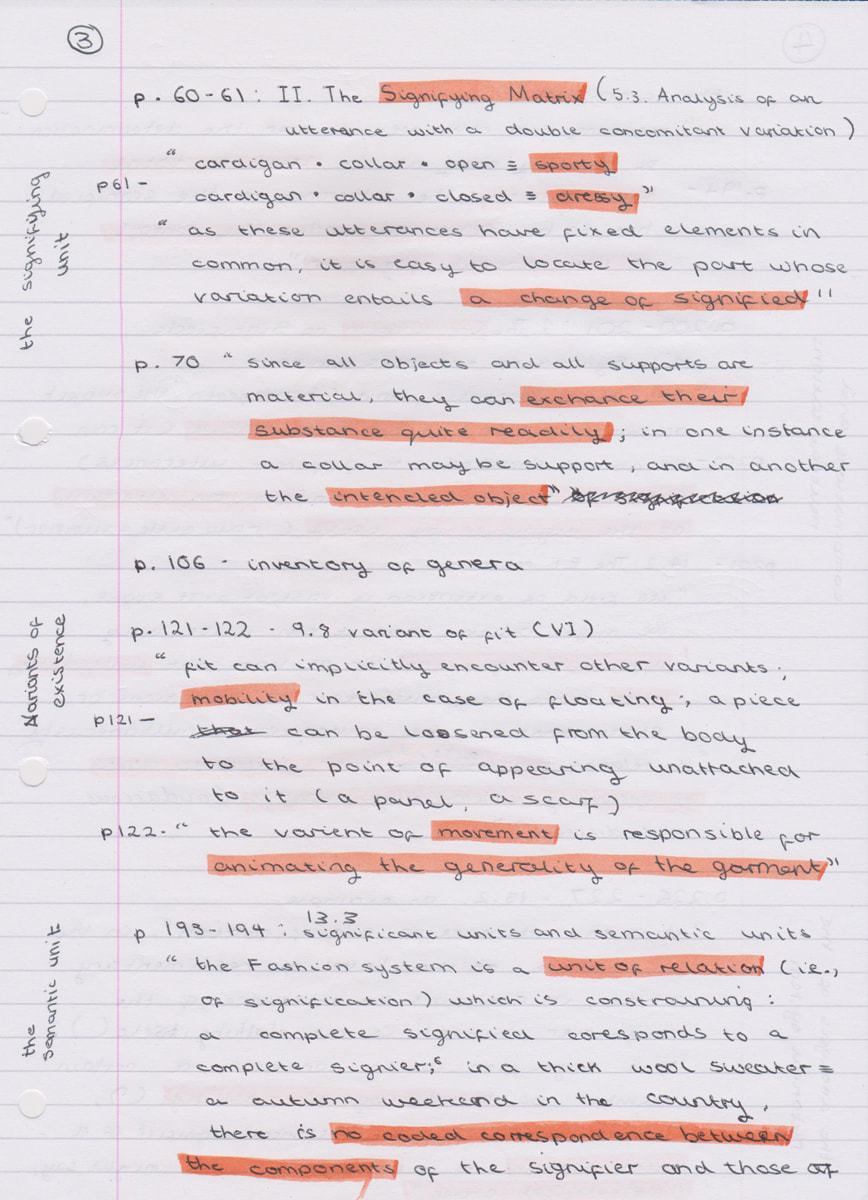 3
p. 60-61: II. The Signifying Matrix (5.3. Analysis of an
utterance with a double concomitant variation)
" cardigan • collar • open ≡ sporty
p61 -
cardigan • collar • closed ≡ dressy"
" as these utterances have fixed elements in
common, it is easy to locate the part whose
variation entails a change of signified"
the signifying
unit
p. 70 " since all objects and all supports are
material, they can exchance their
substance quite readily; in one instance
a collar may be support, and in another
the intended object" of signification
p. 106 - inventory of genera
p. 121-122 - 9.8 variant of fit (VI)
" fit can implicitly encounter other variants;
mobility in the case of floating; a piece
p121 -
that can be loosened from the body
to the point of appearing unattached
to it (a panel, a scarf)
p122. " the varient of movement is responsible for
animating the generality of the garment"
Variants of
existence
p 193-194: 13.3 significant units and semantic units
" the Fashion system is a unit of relation (i.e.,
of signification) which is constraining:
a complete signified coresponds to a
complete signier; in a thick wool sweater =
a autumn weekend in the country,
there is no coded correspondence between
the components of the signifier and those of
the
semantic unit